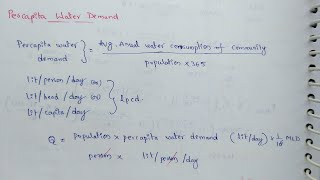 Percapita Water Demand
Percapita water demand } = Avg. Anual water consumption of community
population × 365
lit/person/day (or)
lit/head/day (or) } lpcd.
lit/capita/day
Q = population × percapita water demand (lit/day) × 1/10⁶ MLD
person × lit/person/day